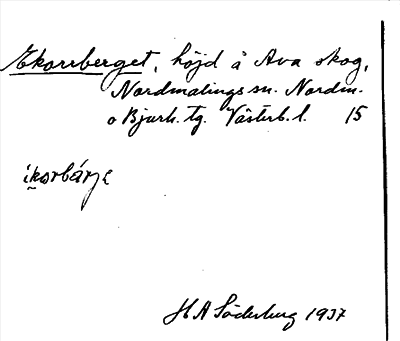 Ekorrberget, höjd å Ava skog,
Nordmalings sn. Nordm.
o Bjurh. tg. Västerb. l. 15
ikorbárje
H A Söderberg 1937